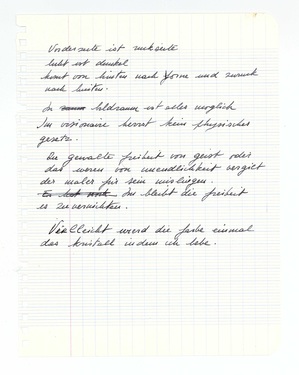 Vorderseite ist rückseite
licht ist dunkel
komt von hinten nach Vorne und zuruck
nach hinten.
In bildraum ist alles moglich
Im visionaire herrst kein physisches
gesetz.
Die gewalte freiheit von geist oder
das weren von unendlichkeit vergibt
der maler für sein mislingen.
Ihn bleibt die freiheit
es zu vernichten.
Vielleicht werd die farbe einmal
das kristall indem ich lebe.